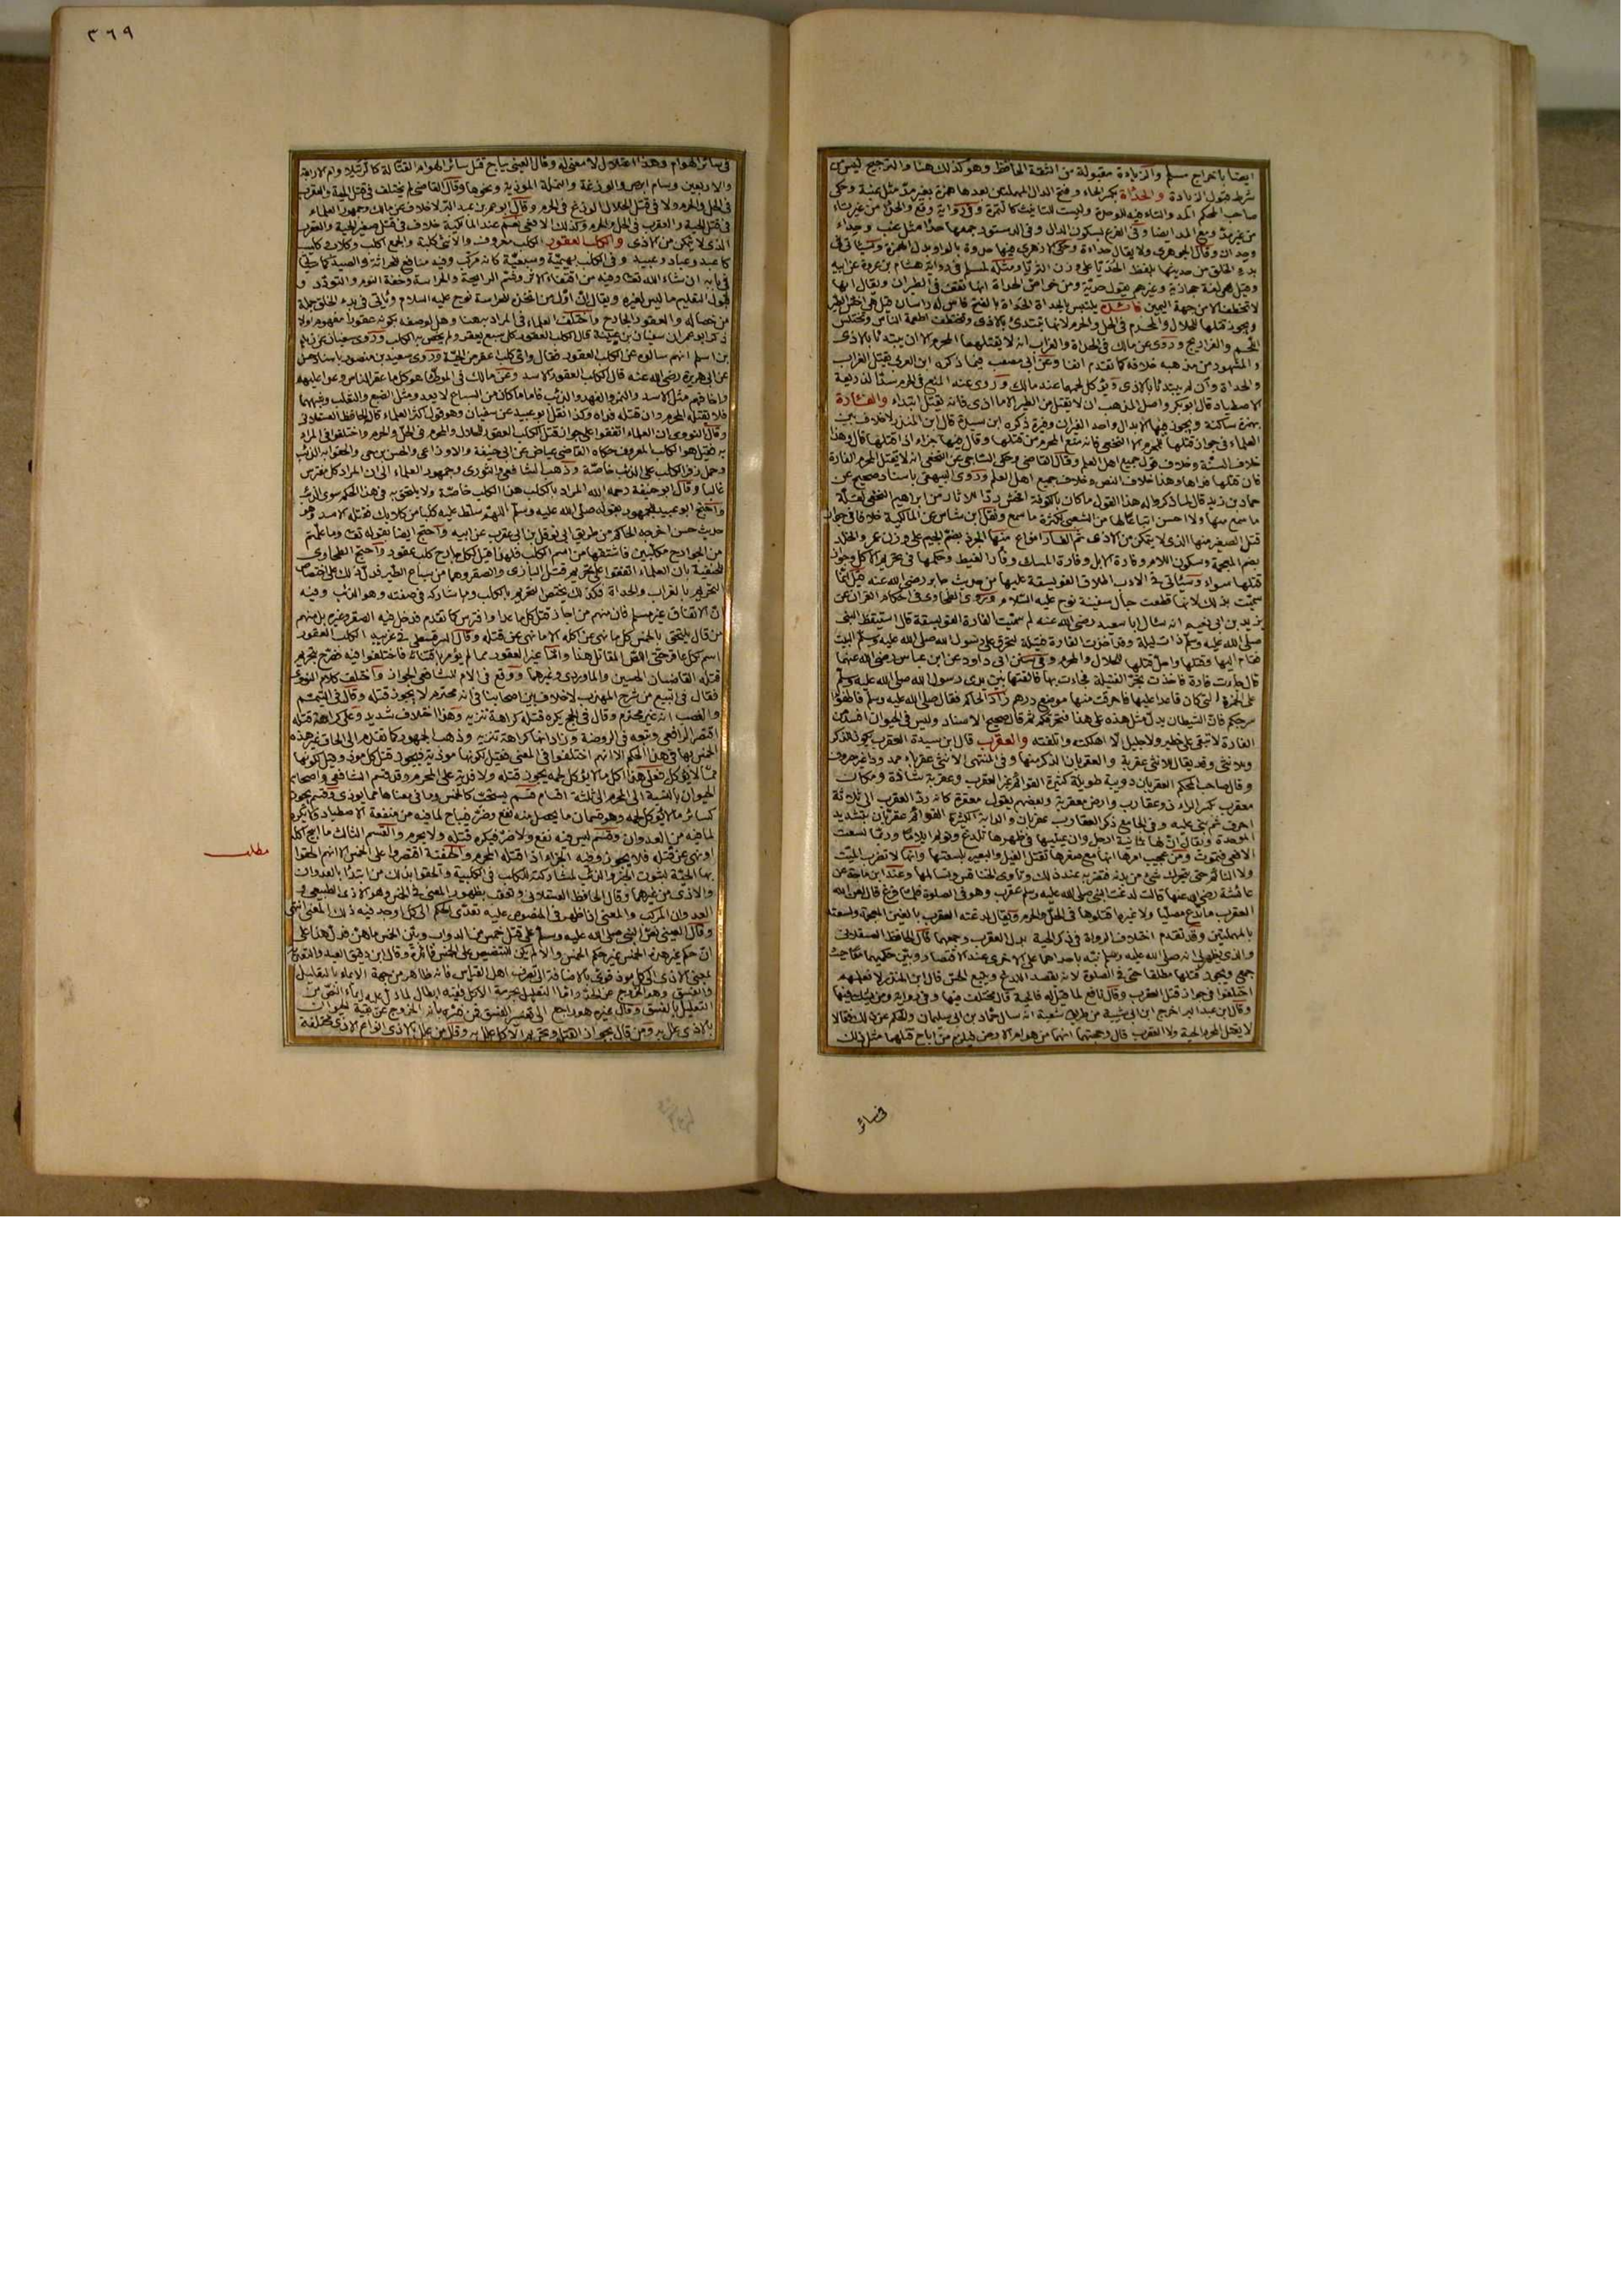 ايضا باخراج مسلم والزيادة مقبولة من الثقة الحافظ وهو كذلك هنا والترجيح ليس من
شرط قبول الزيادة والحدأة بكسر الحاء وفتح الدال المهملتين بعدها همزة بغير مد مثل عنبة وحكى
صاحب المحكم المد والتاء فيه للوحدة وليست للتأنيث كالتمرة وفي رواية وقع والحدأ من غير تاء
من غير مد ومع المد ايضا وفي الفرع بسكون الدال وفي الدستور جمعها حدأ مثل عنب وحداء
وحدان وقال الجوهري ولا يقال حداءة وحكى الازهري فيها حدوة بالواو بدل الهمزة وسيأتي في
بدء الخلق من حديثها بلفظ الحديا على وزن الثريا ومثله لمسلم في رواية هشام بن عروة عن ابيه
وقيل هي لغة حجازية وغيرهم يقول حدية ومن خواص الحدأة انها تقف في الطيران ويقال انها
لا تختطف الا من جهة اليمين فائدة يلتبس بالحدأة الحدأة بالفتح فأس له رأسان
ويجوز قتلها للحلال والمحرم في الحل والحرم لانها تبتدئ بالاذى وتختطف اطعمة الناس وتختلس
اللحم والفراريج وروى عن مالك في الحدأة والغراب انه لا يقتلهما المحرم الا ان يبتدئا بالاذى
والمشهور من مذهبه خلافه كما تقدم آنفا وعن ابي مصعب فيما ذكره ابن العربي يقتل الغراب
والحدأة وان لم يبتدئا بالاذى ويؤكل لحمها عند مالك وروى عنه المنع في المحرم سدا لذريعة
الاصطياد قال ابو بكر واصل المذهب ان لا يقتل من الطير الا ما اذى فانه يقتل ابتداء والفأرة
بهمزة ساكنة ويجوز فيها الابدال واحد الفيران وفيرة ذكره ابن سيدة قال ابن المنذر لا خلاف بين
العلماء في جواز قتلها للمحرم الا النخعي فانه منع المحرم من قتلها وقال فيها جزاء اذا قتلها قال وهذا
خلاف السنة وخلاف قول جميع اهل العلم وقال القاضي وحكى الساجي عن النخعي انه لا يقتل المحرم الفارة
فان قتلها فداها وهذا خلاف النص وخلاف جميع اهل العلم وروى البيهقي باسناد صحيح عن
حماد بن زيد قال لما ذكروا له هذا القول ما كان بالكوفة افحش ردا للاثار من ابراهيم النخعي لقلة
ما سمع منها ولا احسن اتباعا لها من الشعبي لكثرة ما سمع ونقل ابن شاس عن المالكية خلافا في جواز
قتل الصغير منها الذي لا يتمكن من الاذى ثم الفار انواع منها الجرذ بضم الجيم على وزن عمر والخلد
بضم المعجمة وسكون اللام وفارة الابل وفارة المسك وفار الغيط وحكمها في تحريم الاكل وجواز
قتلها سواء وسيأتي في الادب اطلاق الفويسقة عليها من حديث جابر رضي الله عنه قيل انما
سميت بذلك لانها قطعت حبال سفينة نوح عليه السلام وروى الطحاوي في احكام القران عن
يزيد بن ابي نعيم انه سال ابا سعيد رضي الله عنه لم سميت الفارة الفويسقة قال استيقظ النبي
صلى الله عليه وسلم ذات ليلة وقد اخذت الفارة فتيلة لتحرق على رسول الله صلى الله عليه وسلم البيت
فقام اليها وقتلها واحل قتلها للحلال والمحرم وفي سنن ابي داود عن ابن عباس رضي الله عنهما
قال جاءت فارة فاخذت تجر الفتيلة فجاءت بها فالقتها بين يدي رسول الله صلى الله عليه وسلم
على الخمرة التي كان قاعدا عليها فاحرقت منها موضع درهم زاد الحاكم فقال صلى الله عليه وسلم فاطفؤا
سرجكم فان الشيطان يدل مثل هذه على هذا فتحرقكم ثم قال صحيح الاسناد وليس في الحيوان افسد من
الفارة لا تبقى على خطير ولا جليل الا اهلكته واتلفته والعقرب قال ابن سيدة العقرب يكون للذكر
وللانثى وقد يقال للانثى عقربة والعقربان الذكر منها وفي المنتهى الانثى عقرباء ممدود غير مصروف
وقال صاحب المحكم العقربان دويبة طويلة كثيرة القوائم غير العقرب وعقربة شاذة ومكان
معقرب بكسر الراء ذو عقارب وارض معقربة وبعضهم يقول معقرة كانه رد العقرب الى ثلاثة
احرف ثم بنى عليه وفي الجامع ذكر العقارب عقربان والدابة الكثيرة القوائم عقربان بتشديد
الموحدة ويقال ان لها ثمانية ارجل وان عينيها في ظهرها تلدغ وتؤلم ايلاما وربما لسعت
الافعى فتموت ومن عجيب امرها انها مع صغرها تقتل الفيل والبعير بلسعتها وانها لا تضرب الميت
ولا النائم حتى يتحرك شئ من بدنه فتضربه عند ذلك وتأوى الخنافس وتسالمها وعند ابن ماجة عن
عائشة رضي الله عنها قالت لدغت النبي صلى الله عليه وسلم عقرب وهو في الصلوة فلما فرغ قال لعن الله
العقرب ما تدع مصليا ولا غيره اقتلوها في الحل والحرم ويقال لدغته العقرب بالغين المعجمة ولسعته
بالمهملتين وقد تقدم اختلاف الرواة في ذكر الحية بدل العقرب وجمعهما قال الحافظ العسقلاني
والذي يظهر لي انه صلى الله عليه وسلم نبه باحداهما على الاخرى عند الاقتصار وبين حكمهما معا حيث
جمع ويجوز قتلها مطلقا حتى في الصلوة لانه يقصد اللدغ ويتبع الحس قال ابن المنذر لا نعلمهم
اختلفوا في جواز قتل العقرب وقال نافع لما قيل له فالحية قال لا يختلف فيها وفي رواية ومن يشك فيها
وقال ابن عبد البر اخرج ابن ابي شيبة من طريق شعبة انه سال حماد بن ابي سليمان والحكم عن ذلك فقالا
لا يقتل المحرم الحية ولا العقرب قال وحجتهما انهما من هوام الارض فيلزم من اباح قتلهما مثل ذلك
في سائر
٣٦٩
في سائر الهوام وهذا اعتلال لا معنى له وقال العيني يباح قتل سائر الهوام القتالة كالرتيلا وام الاربعة
والاربعين وسام ابرص والوزغة والنملة الموذية ونحوها وقال القاضي لم يختلف في قتل الحية والعقرب
في الحل والحرم ولا في قتل الحلال الوزغ في الحرم وقال ابو عمر بن عبد البر لا خلاف عن مالك وجمهور العلماء
في قتل الحية والعقرب في الحل والحرم وكذلك الافعى نعم عند المالكية خلاف في قتل صغير الحية والعقرب
الذي لا يتمكن من الاذى والكلب العقور الكلب معروف والانثى كلبة والجمع اكلب وكلاب وكليب
كاعبد وعباد وعبيد وفي الكلب بهيمية وسبعية كانه مركب وفيه منافع للحراثة والصيد كما سيأتي
في بابه ان شاء الله تعالى وفيه من اقتفاء الاثر وشم الرائحة والحراسة وخفة النوم والتودد و
قبول التعليم ما ليس لغيره ويقال ان اول من اتخذه للحراسة نوح عليه السلام وياتي في بدء الخلق جملة
من خصاله والعقور الجارح واختلف العلماء في المراد به هنا وهل لوصفه بكونه عقورا مفهوم اولا
ذكر ابو عمر ان سفيان بن عيينة قال الكلب العقور كل سبع يعقر ولم يخص به الكلب وروى سفيان عن زيد
بن اسلم انهم سالوه عن الكلب العقور فقال واي كلب اعقر من الحية وروى سعيد بن منصور باسناد حسن
عن ابي هريرة رضي الله عنه قال الكلب العقور الاسد وعن مالك في الموطأ هو كل ما عقر الناس وعدا عليهم
واخافهم مثل الاسد والنمر والفهد والذئب فاما ما كان من السباع لا يعدو مثل الضبع والثعلب وشبههما
فلا يقتله المحرم وان قتله فداه وكذا نقل ابو عبيد عن سفيان وهو قول اكثر العلماء كما قال الحافظ العسقلاني
وقال النووي ان العلماء اتفقوا على جواز قتل الكلب العقور للحلال والمحرم في الحل والحرم واختلفوا في المراد
به فقيل هو الكلب المعروف حكاه القاضي عياض عن ابي حنيفة والاوزاعي والحسن بن حي والحقوا به الذئب
وحمل زفر الكلب على الذئب خاصة وذهب الشافعي والثوري وجمهور العلماء الى ان المراد كل مفترس
غالبا وقال ابو حنيفة رحمه الله المراد بالكلب هنا الكلب خاصة ولا يلتحق به في هذا الحكم سوى الذئب
واحتج ابو عبيد للجمهور بقوله صلى الله عليه وسلم اللهم سلط عليه كلبا من كلابك فقتله الاسد وهو
حديث حسن اخرجه الحاكم من طريق ابي نوفل بن ابي عقرب عن ابيه واحتج ايضا بقوله تعالى وما علمتم
من الجوارح مكلبين فاشتقها من اسم الكلب فلهذا قيل لكل جارح كلب عقور واحتج الطحاوي
للحنفية بان العلماء اتفقوا على تحريم قتل البازي والصقر وهما من سباع الطير فدل ذلك على اختصاص
التحريم بالغراب والحدأة فكذلك يختص التحريم بالكلب وما شاركه في صفته وهو الذئب وفيه
ان الاتفاق غير مسلم فان منهم من اجاز قتل كل ما عدا وافترس كما تقدم فدخل فيه الصقر وغيره بل منهم
من قال يلتحق بالخمس كل ما نهي عن اكله الا ما نهي عن قتله وقال السرقسطي في غريبه الكلب العقور
اسم لكل عاقر حتى اللص المقاتل هنا واما غير العقور مما لم يؤمر باقتنائه فاختلفوا فيه فصرح بتحريم
قتله القاضيان الحسين والماوردي وغيرهما ووقع في الام للشافعي الجواز واختلف كلام النووي
فقال في البيع من شرح المهذب لا خلاف بين اصحابنا في انه محترم لا يجوز قتله وقال في التيمم
والغصب انه غير محترم وقال في الحج يكره قتله كراهة تنزيه وهذا اختلاف شديد وعلى كراهة قتله
اقتصر الرافعي وتبعه في الروضة وزاد انها كراهة تنزيه وذهب الجمهور كما تقدم الى الحاق غير هذه
الخمس بها في هذا الحكم الا انهم اختلفوا في المعنى فقيل لكونها موذية فيجوز قتل كل موذ وقيل لكونها
مما لا يؤكل فعلى هذا كل ما لا يؤكل لحمه يجوز قتله ولا فدية على المحرم وقد قسم الشافعي واصحابه
الحيوان بالنسبة الى المحرم الى ثلثة اقسام قسم يستحب كالخمس وما في معناها مما يوذي وقسم يجوز
كسائر ما لا يؤكل لحمه وهو قسمان ما يحصل منه نفع وضر فيباح لما فيه من منفعة الاصطياد ولا يكره
لما فيه من العدوان وقسم ليس فيه نفع ولا ضر فيكره قتله ولا يحرم والقسم الثالث ما ابيح اكله
او نهي عن قتله فلا يجوز وفيه الجزاء اذا قتله المحرم والحنفية اقتصروا على الخمس الا انهم الحقوا
بها الحية لثبوت الخبر والذئب لمشاركته للكلب في الكلبية والحقوا بذلك من ابتدأ بالعدوان
والاذى من غيرهما وقال الحافظ العسقلاني وتعقب بظهور المعنى في الخمس وهو الاذى الطبيعي و
العدوان المركب والمعنى اذا ظهر في المنصوص عليه تعدى الحكم الى كل ما وجد فيه ذلك المعنى انتهى
وقال العيني نص النبي صلى الله عليه وسلم على قتل خمس من الدواب وبين الخمس ما هن فدل هذا على
ان حكم غير هذه الخمس غير حكم الخمس والا لم يكن للتنصيص على الخمس فائدة وقال ابن دقيق العيد والتعدية
بمعنى الاذى الى كل موذ قوي بالاضافة الى تصرف اهل القياس فانه ظاهر من جهة الايماء بالتعليل
بالفسق وهو الخروج عن الحد واما التعليل بحرمة الاكل ففيه ابطال لما دل عليه ايماء النص من
التعليل بالفسق وقال غيره هو راجع الى تفسير الفسق فمن فسره بانه الخروج عن بقية الحيوانات
بالاذى علل به ومن قال بجواز القتل وتحريم الاكل علل به وقال من علل بالاذى انواع الاذى مختلفة
مطلب